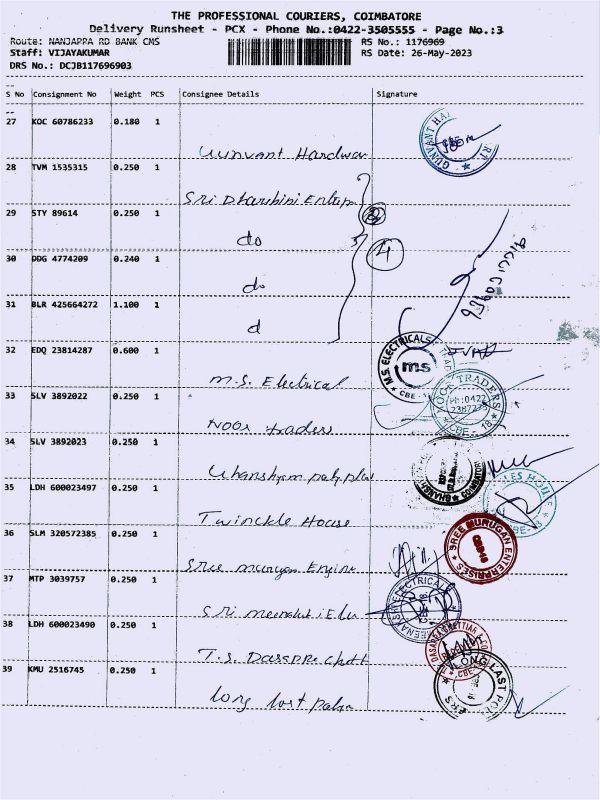 THE PROFESSIONAL COURIERS, COIMBATORE
Delivery Runsheet - PCX - Phone No.:0422-3505555 - Page No.:3
Route: NANJAPPA RD BANK CMS RS No.: 1176969
Staff: VIJAYAKUMAR RS Date: 26-May-2023
DRS No.: DCJB117696903
S No Consignment No Weight PCS Consignee Details Signature
27 KOC 60786233 0.180 1
Gunvant Hardwar
28 TVM 1535315 0.250 1
Sri Dharshini Enterp
29 STY 89614 0.250 1
do
4
30 DDG 4774209 0.240 1
do
31 BLR 425664272 1.100 1
d
32 EDQ 23814287 0.600 1
M.S. ELECTRICALS
ms
CBE
m.s. Electrical
33 SLV 3892022 0.250 1
TRADERS
PH:0422
CBE-18
Noor traders
34 SLV 3892023 0.250 1
COIMBATORE
Ghanshyam polyplas
35 LDH 600023497 0.250 1
Twinckle House
36 SLM 320572385 0.250 1
SREE MURUGAN ENTERPRISES
Sree murugan Enginee
37 MTP 3039757 0.250 1
Sri meenakshi Elec
38 LDH 600023490 0.250 1
T.S. Dasappa chett
39 KMU 2516745 0.250 1
LONG LAST POLY
long last polym